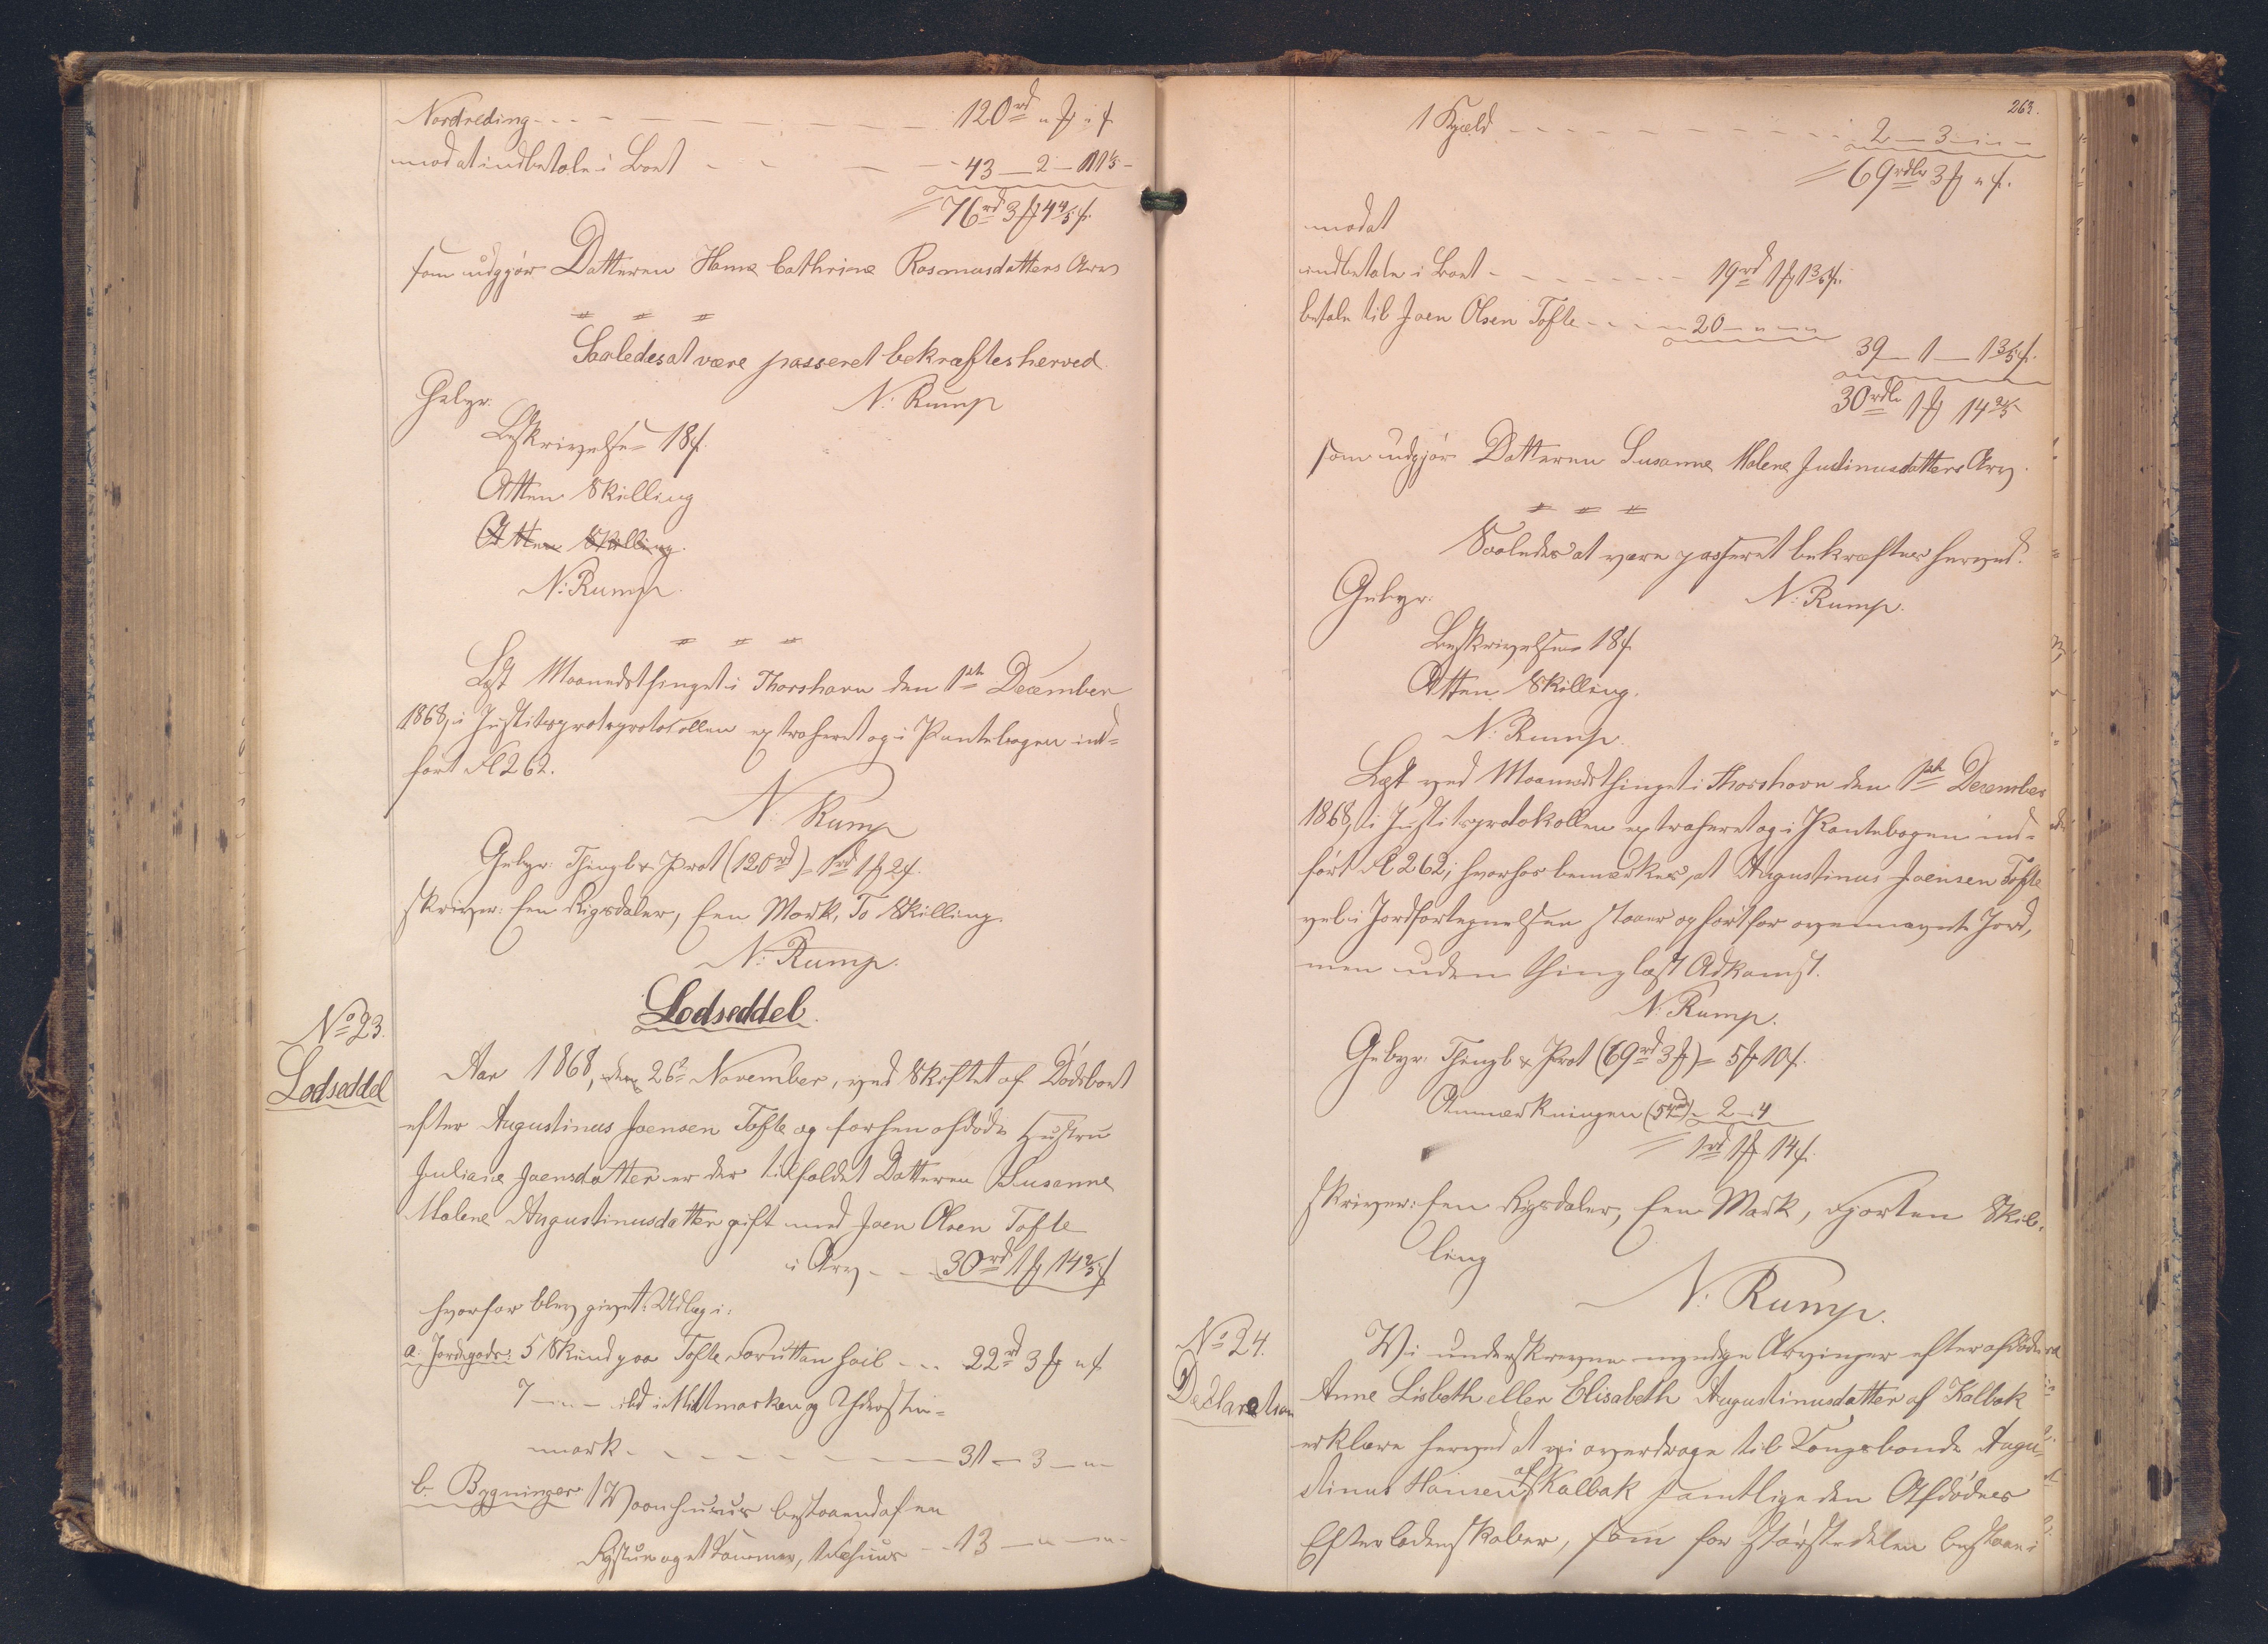 Nordreding - - - 120 rd " ℳ " ß
mod at indbetale i Boet - - - 43 — 2 — 11 1/5 -
= 76 rd 3 ℳ 4 4/5 ß.
som udgjør Datteren Hanne Cathrine Rasmusdatters Arv
= = =
Saaledes at være passeret bekræftes herved
Gebyr: N: Rump
Beskrivelse 18 ß.
Atten Skilling
Atten Skilling.
N: Rump.
= = =
Læst Maanedsthinget i Thorshavn den 1ste December
1868, i Justitsprotoprotocollen extraheret og i Pantebogen ind-
ført Fol 262.
N. Rump
Gebyr: Thingl & Prot (120 rd) = 1 rd 1 ℳ 2 ß.
skriver: Een Rigsdaler, Een Mark, To Skilling.
N: Rump.
Lodseddel.
No 23.
Lodseddel
Aar 1868, den 26de November, ved Skiftet af Dødsboet
efter Augustinus Joensen Tofte og forhen afdøde Hustru
Juliane Joensdatter er der tilfaldet Datteren Susanne
Malene Augustinusdatter gift med Joen Olsen Tofte
i Arv - - 30 rd 1 ℳ 14 2/5 ß
hvorfor blev givet Udlæg i:
a. Jordegods: 5 Skind paa Tofte - - - 22 rd 3 ℳ " ß
7 — " — ibd i Midtmarken og Yderstin-
mark - - - 31 — 3 — " -
b. Bygninger: 1 Vaanhuus bestaaende af en
Røgstue og et Kammer, - - 13 — " — " -
263.
1 Kjæld - - - 2 — 3 — " -
= 69 rdlr 3 ℳ " ß.
mod at
indbetale i Boet - - - 19 rd 1 ℳ 1 3/5 ß.
betale til Joen Olsen Tofte - - - 20 — " — "
39 — 1 — 1 3/5 ß.
30 rdlr 1 ℳ 14 2/5
som udgjør Datteren Susanne Malene Justinusdatters Arv.
= = =
Saaledes at være passeret bekræftes herved.
Gebyr: N: Rump.
Beskrivelse 18 ß.
Atten Skilling.
N: Rump.
Læst ved Maanedsthinget i Thorshavn den 1ste December
1868, i Justitsprotokollen extraheret og i Pantebogen ind-
ført Fol 262; hvorhos bemærkes, at Augustinus Joensen Tofte
vel i Jordfortegnelsen staaer opført for ovennævnte Jord,
men uden thinglæst Adkomst.
N: Rump.
Gebyr: Thingl & Prot (69 rd 3 ℳ) = 5 ℳ 10 ß.
Anmærkningen (54 rd) = 2 — 4
= 1 rd 1 ℳ 14 ß.
skriver: Een Rigsdaler, Een Mark, Fjorten Skil-
ling
N: Rump.
No 24.
Declaration
Vi underskrevne myndige Arvinger efter afdøde
Anne Lisbeth eller Elisabeth Augustinusdatter af Kalbak
erklære herved at vi overdrage til Kongsbonde Augu-
stinus Hansen af Kalbak samtlige den Afdødes
Efterladenskaber, som for størstedelen bestaae i